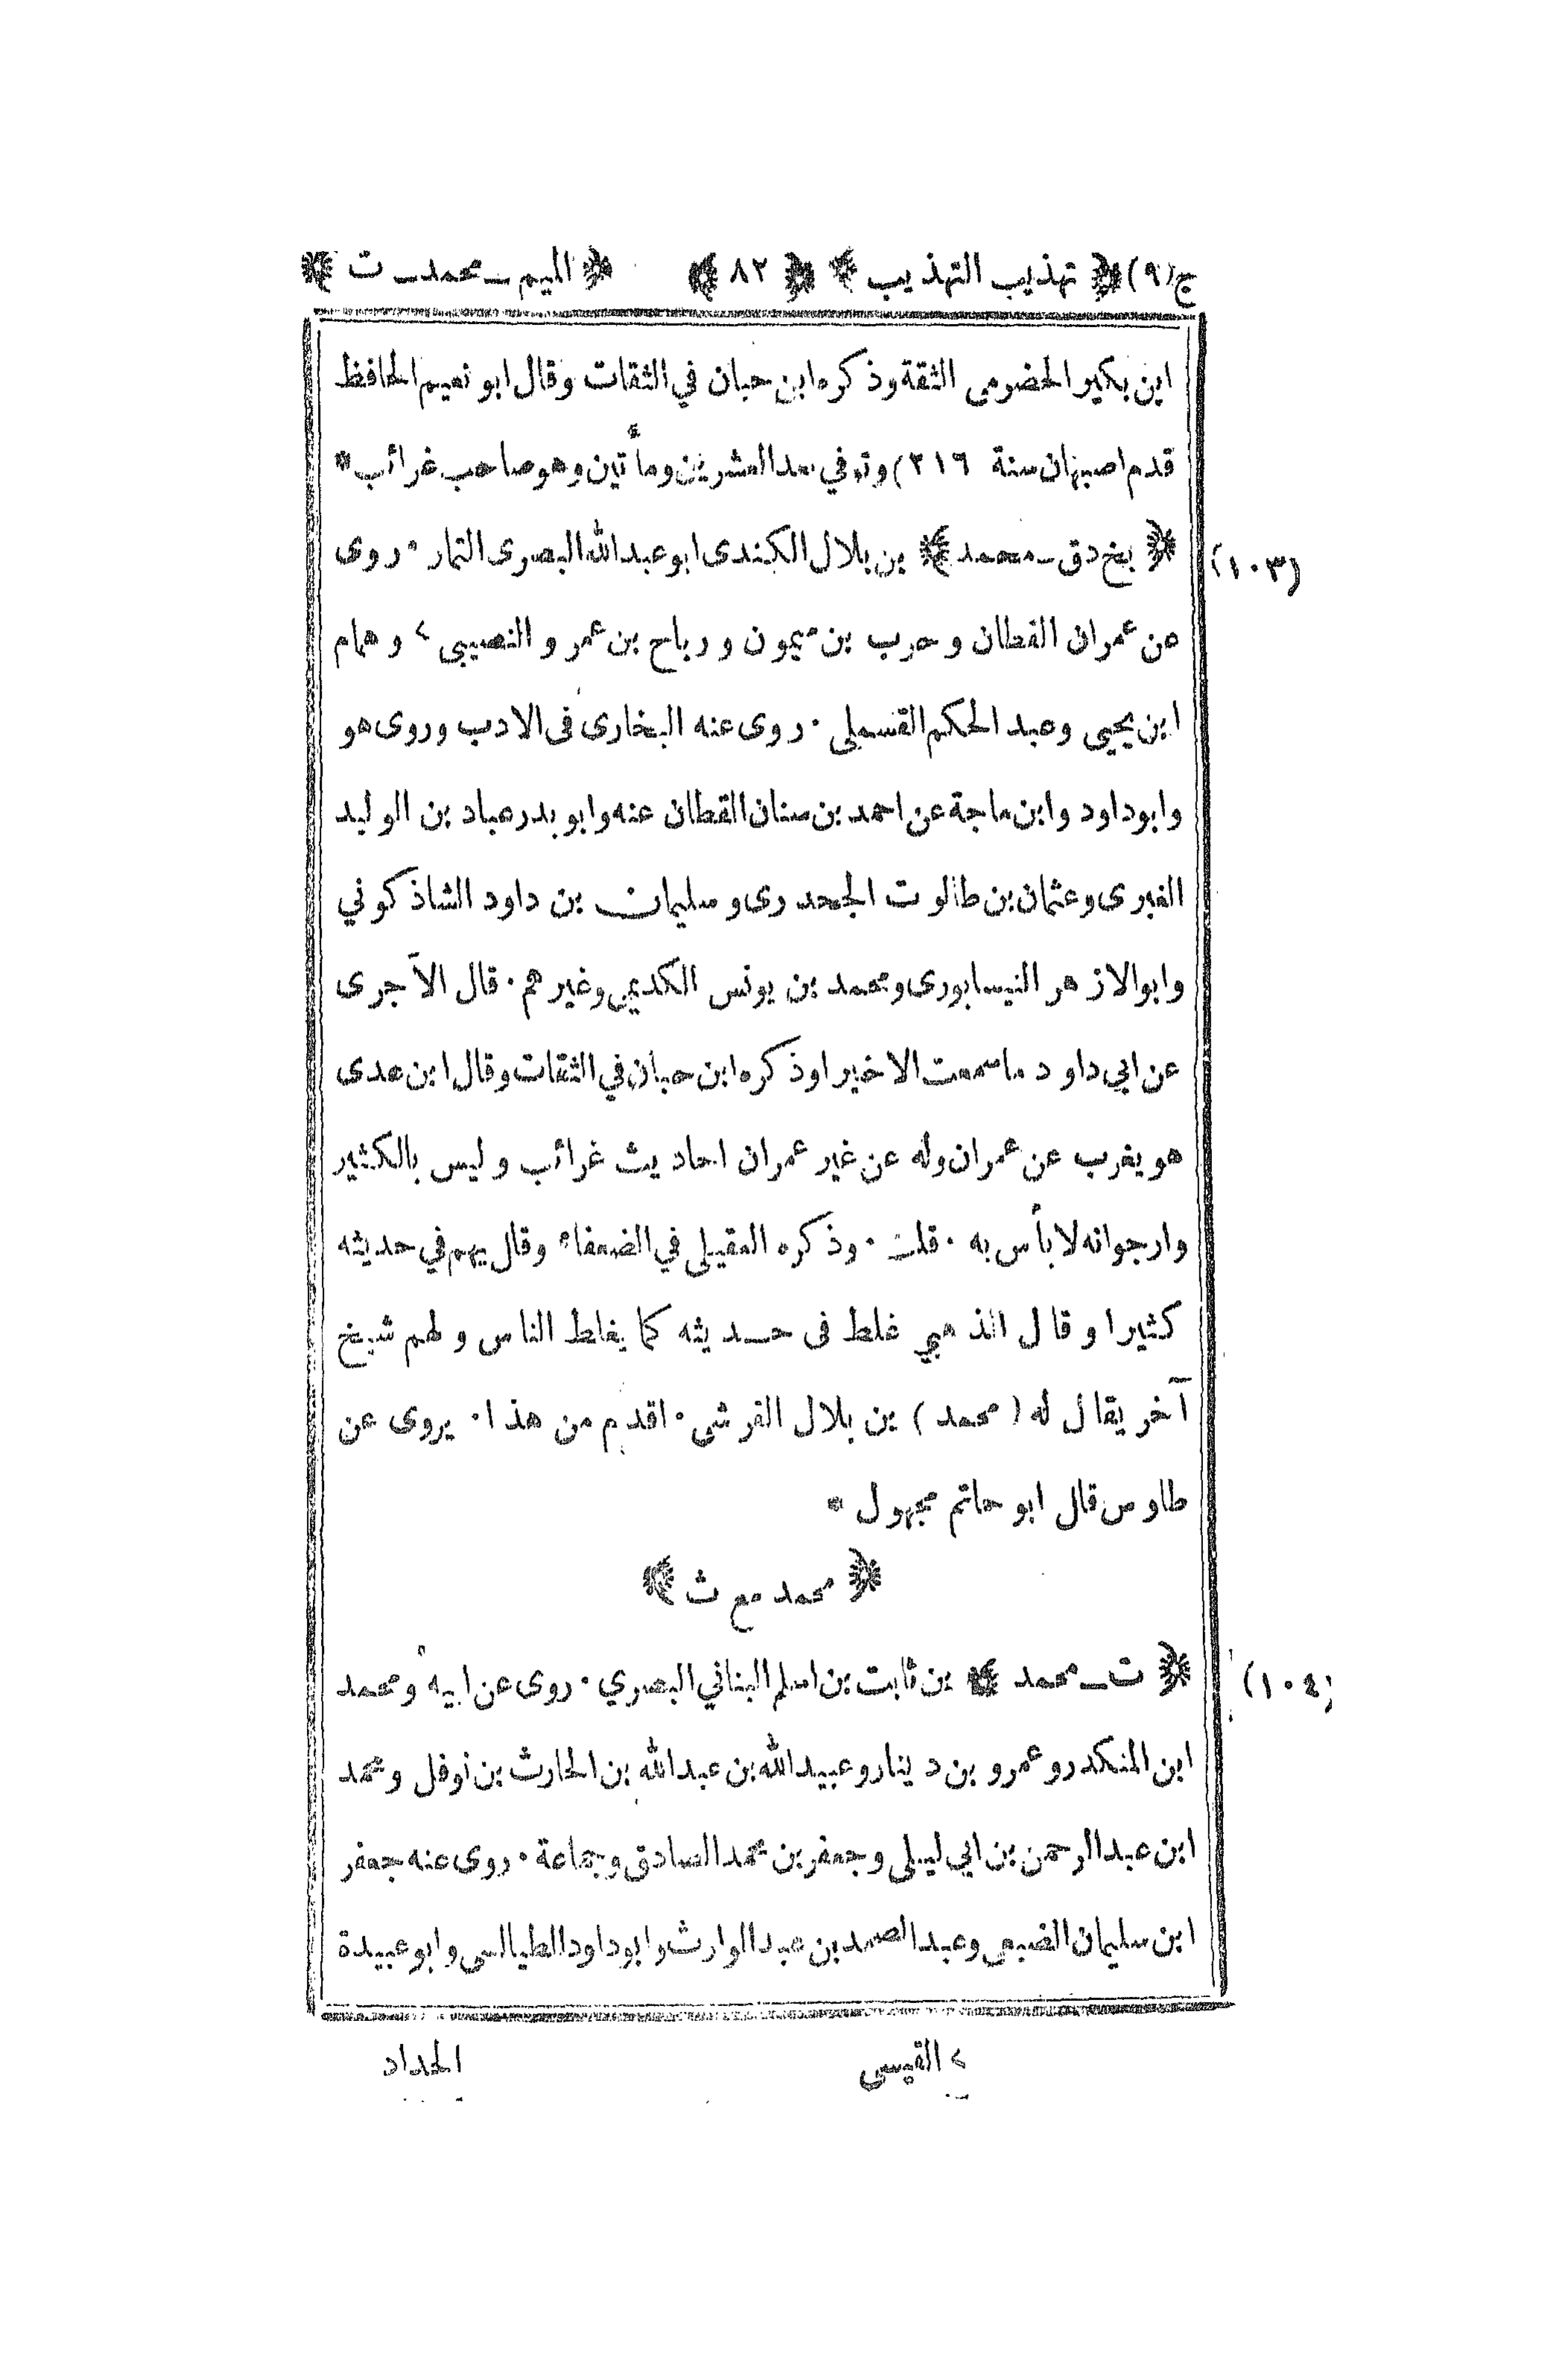 ج(٩) ﴿ تهذيب التهذيب ﴾ ﴿ ٨٢ ﴾ ﴿ الميم ـ محمد ـ ت ﴾
ابن بكير الحضرمى الثقة وذكره ابن حبان في الثقات وقال ابو نعيم الحافظ
قدم اصبهان سنة ٢١٦) وتوفي بعد العشرين ومأتين وهو صاحب غرائب *
(١٠٣) ﴿ بخ دق ـ محمد ﴾ بن بلال الكندى ابو عبد الله البصرى التمار ٠ روى
عن عمران القطان و حرب بن ميمون و رباح بن عمر و النصيبى ٢ و همام
ابن يحيى وعبد الحكم القسملى ٠ روى عنه البخارى فى الادب وروى هو
وابو داود وابن ماجة عن احمد بن سنان القطان عنه وابو بدر عباد بن الوليد
الغبرى وعثمان بن طالوت الجحدرى و سليمان بن داود الشاذكوني
وابو الازهر النيسابورى ومحمد بن يونس الكديمى وغيرهم ٠ قال الآجرى
عن ابي داود ماسمعت الا خيرا وذكره ابن حبان في الثقات وقال ابن عدى
هو يغرب عن عمران وله عن غير عمران احاديث غرائب و ليس بالكثير
وارجو انه لا بأس به ٠ قلت ٠ وذكره العقيلى في الضعفاء وقال يهم في حديثه
كثيرا و قال الذهبي غلط فى حديثه كما يغلط الناس و لهم شيخ
آخر يقال له ( محمد ) بن بلال القرشى ٠ اقدم من هذا ٠ يروى عن
طاوس قال ابو حاتم مجهول *
﴿ محمد مع ث ﴾
(١٠٤) ﴿ ت ـ محمد ﴾ بن ثابت بن اسلم البناني البصري ٠ روى عن ابيه ومحمد
ابن المنكدر و عمرو بن دينار و عبيد الله بن عبد الله بن الحارث بن نوفل و محمد
ابن عبد الرحمن بن ابي ليلى و جعفر بن محمد الصادق وجماعة ٠ روى عنه جعفر
ابن سليمان الضبعى وعبد الصمد بن عبد الوارث وابو داود الطيالسى وابو عبيدة
٢ القيسى
الحداد